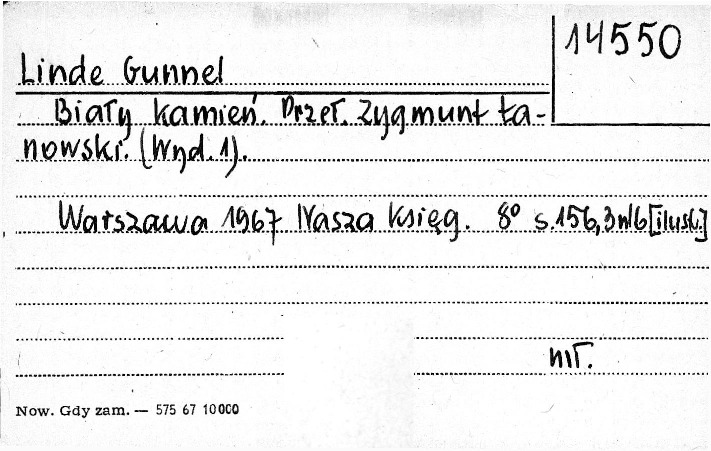 14550
Linde Gunnel
Biały kamień. Przeł. Zygmunt Ła-
nowski. (Wyd. 1).
Warszawa 1967 Nasza Księg. 8° s.156, 3 nlb [ilustr.]
mł.
Now. Gdy zam. — 575 67 10000